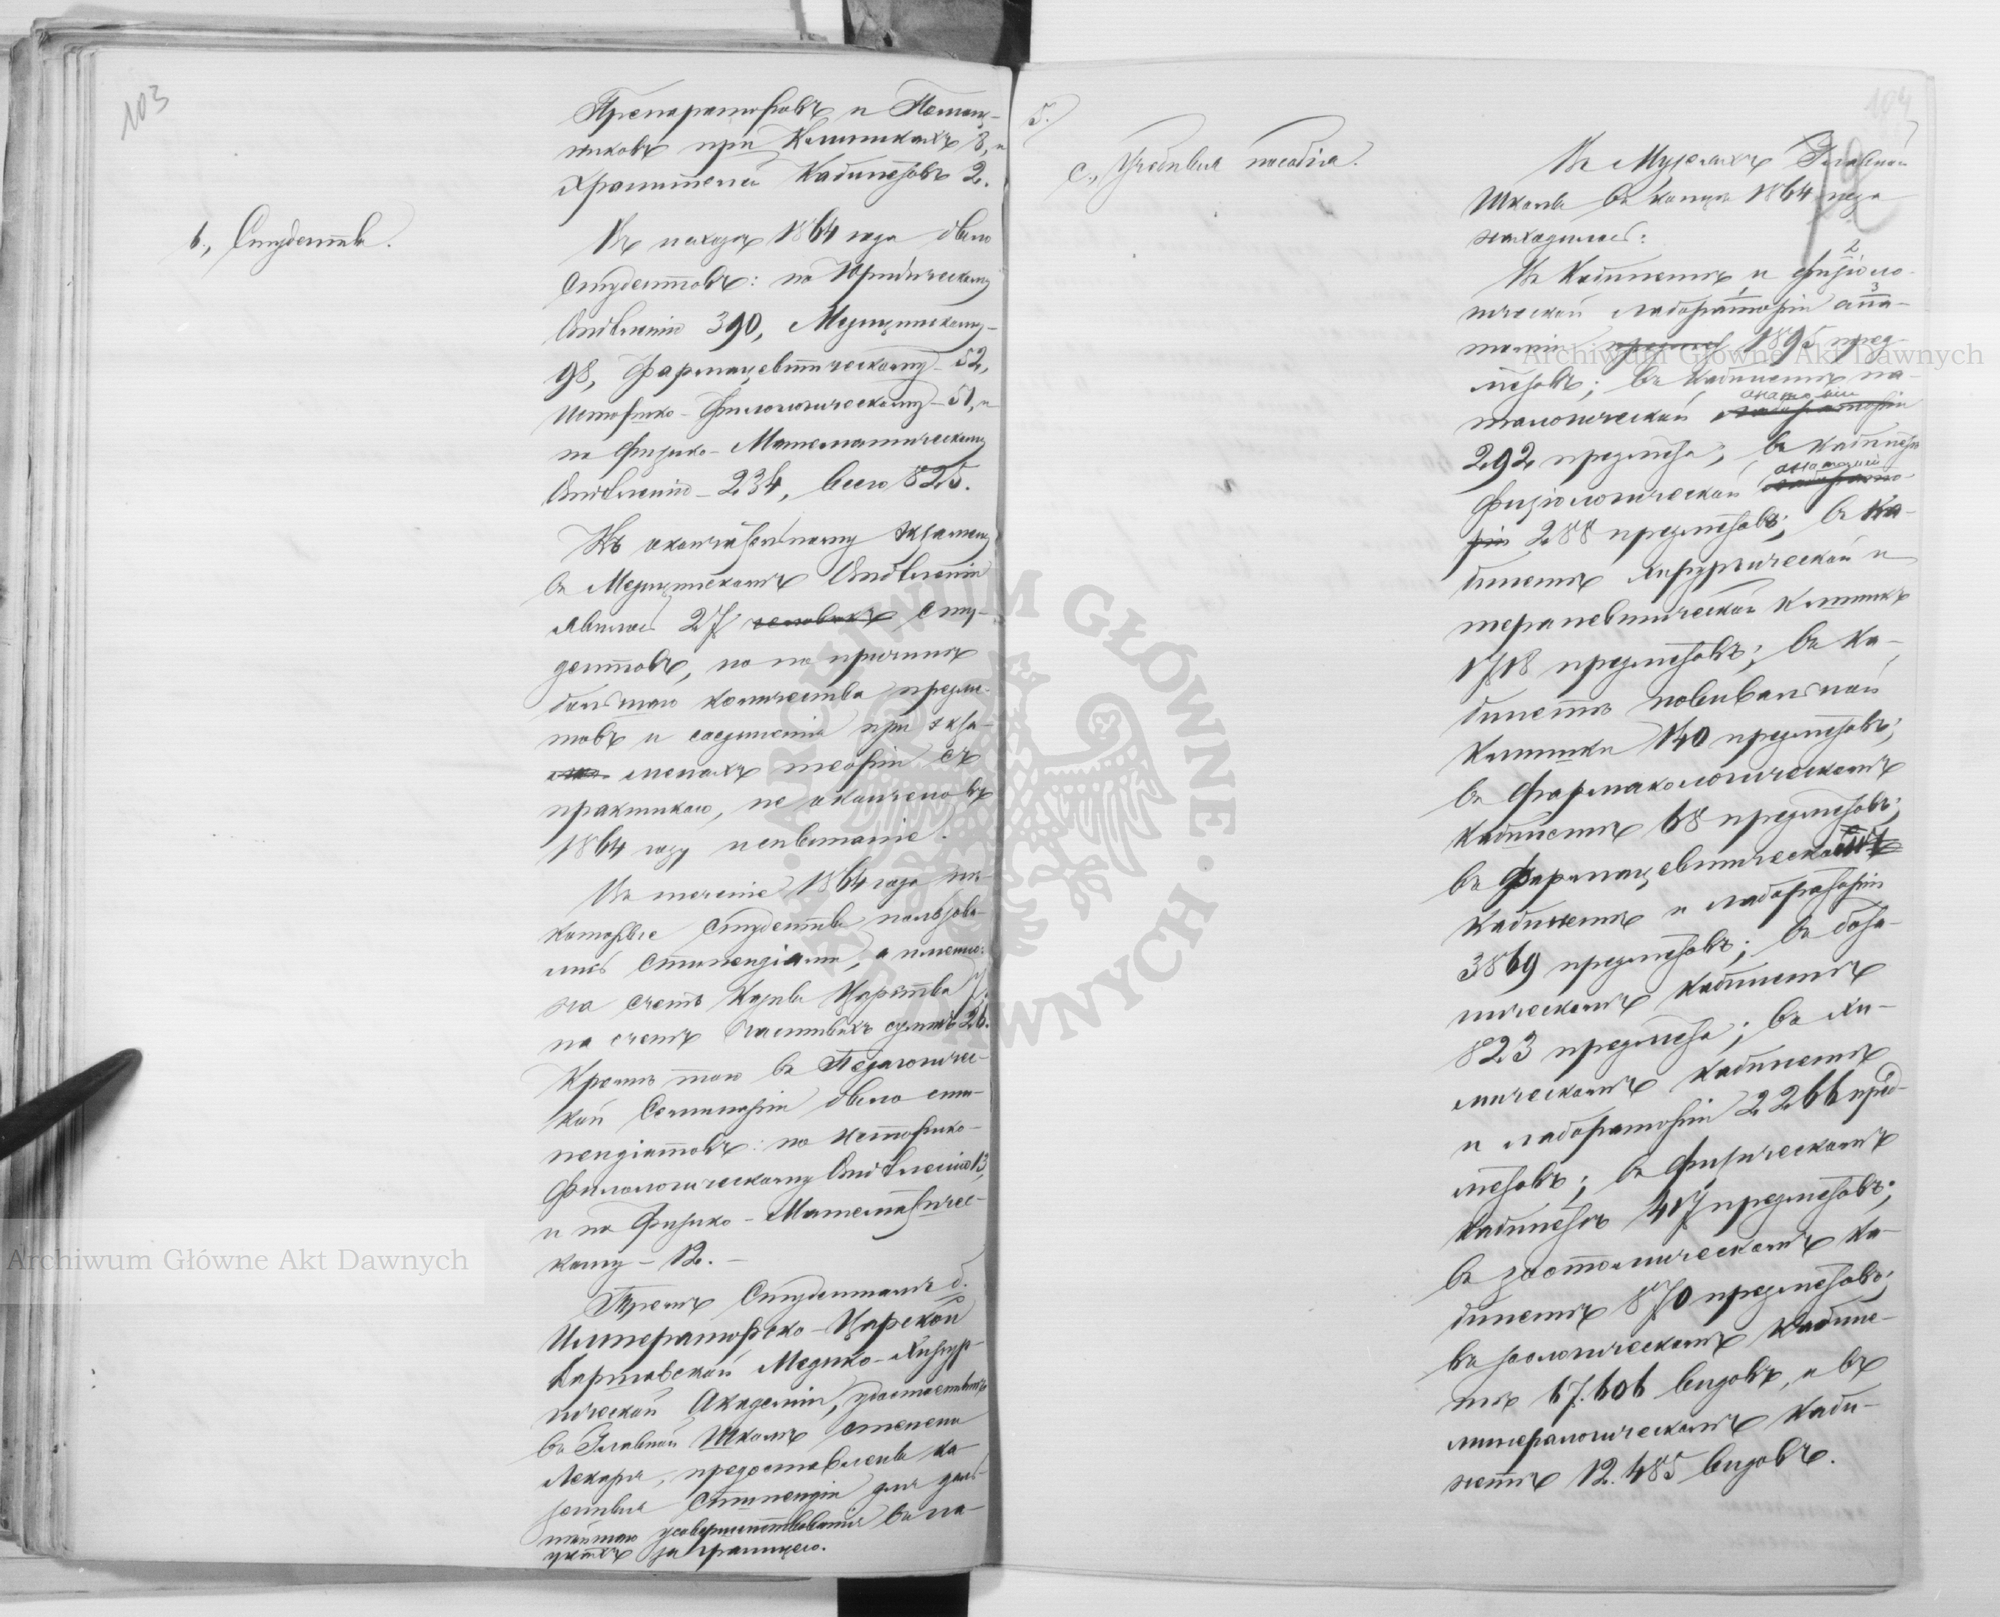 103
Препараторовъ и Помощ-
никовъ при Клиникахъ 8, и
Хранителей Кабинетовъ 2.
b., Студенты.
Къ исходу 1864 года было
Студентовъ: по Юридическому
Отдѣленію 390, Медицинскому-
98, Фармацевтическому - 52,
Историко-Филологическому - 51, и
по Физико-Математическому
Отдѣленію - 234, всего 825.
Къ окончательному экзамену
въ Медицинскомъ Отдѣленіи
явилось 27 человѣкъ сту-
дентовъ, но по причинѣ
большаго количества предме-
товъ и соединенія при экза-
менахъ теоріи съ
практикою, не окончено въ
1864 году испытаніе.
Въ теченіе 1864 года нѣ-
которые Студенты пользова-
лись стипендіями, а именно:
на счетъ Казны Царства 7,
на счетъ частныхъ суммъ 26.
Кромѣ того въ Педагогичес-
кой Семинаріи было сти-
пендіатовъ: по Историко-
Филологическому Отдѣленію 13,
и по Физико-Математичес-
кому - 12. -
Тремъ Студентамъ б.
Императорско-Царской
Варшавской Медико-Хирур-
гической Академіи, удостоеннымъ
въ Главной Школѣ степени
Лекаря, предоставлены ка-
зенныя стипендіи для даль-
нѣйшаго усовершенствованія въ на-
укахъ за границею.
104
5.
c., Учебныя пособія.
Въ Музеяхъ Главной
Школы въ концѣ 1864 года
находилось:
Въ Кабинетѣ и физіоло-
2
гической лабораторіи ана-
3
томіи 1895 пред-
метовъ; въ кабинетѣ па-
тологической лабораторіи
анатоміи
292 предмета; въ кабинетѣ
физіологической лаборато-
анатоміи
ріи 288 предметовъ; въ Ка-
бинетѣ хирургической и
терапевтической клиникъ
1718 предметовъ; въ Ка-
бинетѣ повивальной
клиники 140 предметовъ;
въ Фармакологическомъ
кабинетѣ 68 предметовъ;
въ Фармацевтическомъ
кабинетѣ и лабораторіи
3869 предметовъ; въ бота-
ническомъ кабинетѣ
823 предмета; въ хи-
мическомъ кабинетѣ
и лабораторіи 2266 пред-
метовъ; въ физическомъ
кабинетѣ 417 предметовъ;
въ зоотомическомъ ка-
бинетѣ 870 предметовъ;
въ зоологическомъ кабине-
тѣ 67.606 видовъ, а въ
минералогическомъ каби-
нетѣ 12.485 видовъ.
Archiwum Główne Akt Dawnych
Archiwum Główne Akt Dawnych
ARCHIWUM GŁÓWNE AKT DAWNYCH